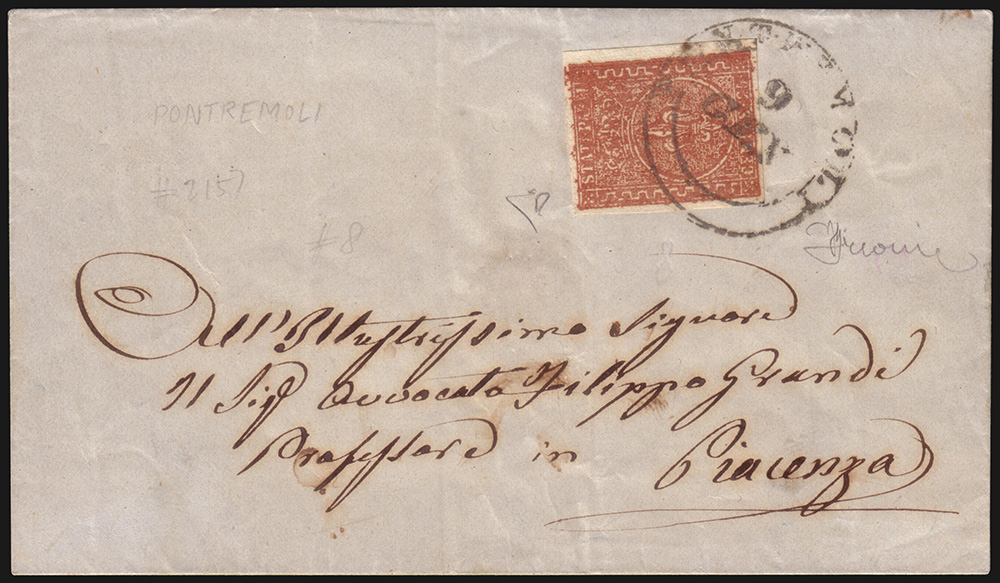 PONTREMOLI
#2157
#8
PONTREMOLI
9
GEN
STATI PARM
All'Illustrissimo Signore
Il Sigr Avvocato Filippo Grandi
Professore in Piacenza